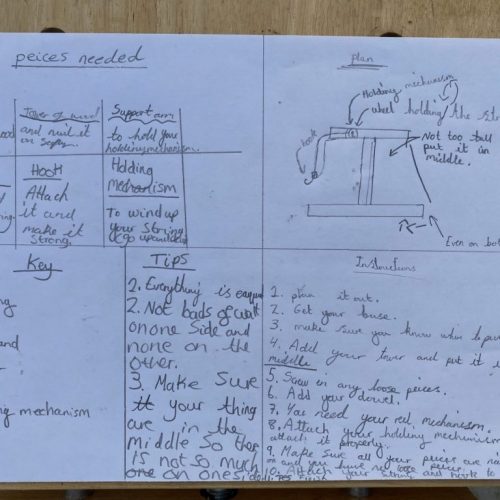 peices needed
Tower of wood
and nail it
in
Support arm
to hold your
holding mechanism.
Hook
Attach
it and
make it
strong.
Holding
Mechanism
To wind up
your string
plan
Holding mechanism
wheel holding the
hook
Not too tall
put it in
middle.
Even on
Key
and
mechanism
Tips
1. Everything is equal
2. Not bads of
on one side and
none on the
other.
3. Make Sure
your thing
are in the
middle so ther
is not so much
one on one side
Instructions
1. plan it out.
2. Get your base.
3. make sure you know where to
4. Add your tower and put it
middle
5. Screw in any loose peices.
6. Add your dowel.
7. You need your reel mechanism.
8. Attach your holding mechanism
attach it properly.
9. Make sure all your peices are
and you have no loose peices.
10. Attach your string and hook to